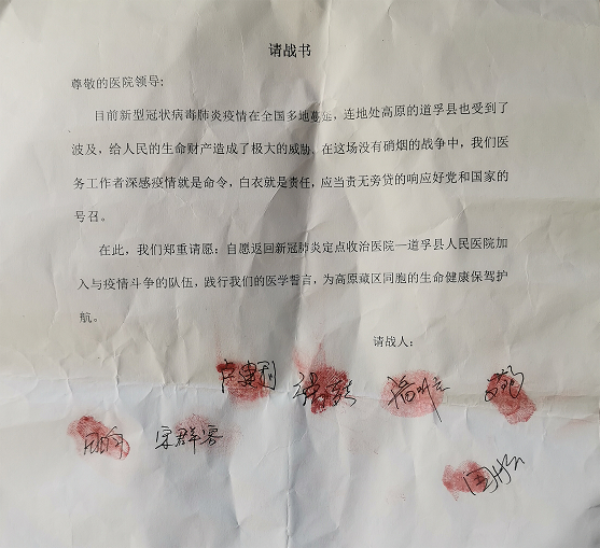 请战书
尊敬的医院领导:
目前新型冠状病毒肺炎疫情在全国多地蔓延，连地处高原的道孚县也受到了
波及，给人民的生命财产造成了极大的威胁。在这场没有硝烟的战争中，我们医
务工作者深感疫情就是命令，白衣就是责任，应当责无旁贷的响应好党和国家的
号召。
在此，我们郑重请愿：自愿返回新冠肺炎定点收治医院—道孚县人民医院加
入与疫情斗争的队伍，践行我们的医学誓言，为高原藏区同胞的生命健康保驾护
航。
请战人：